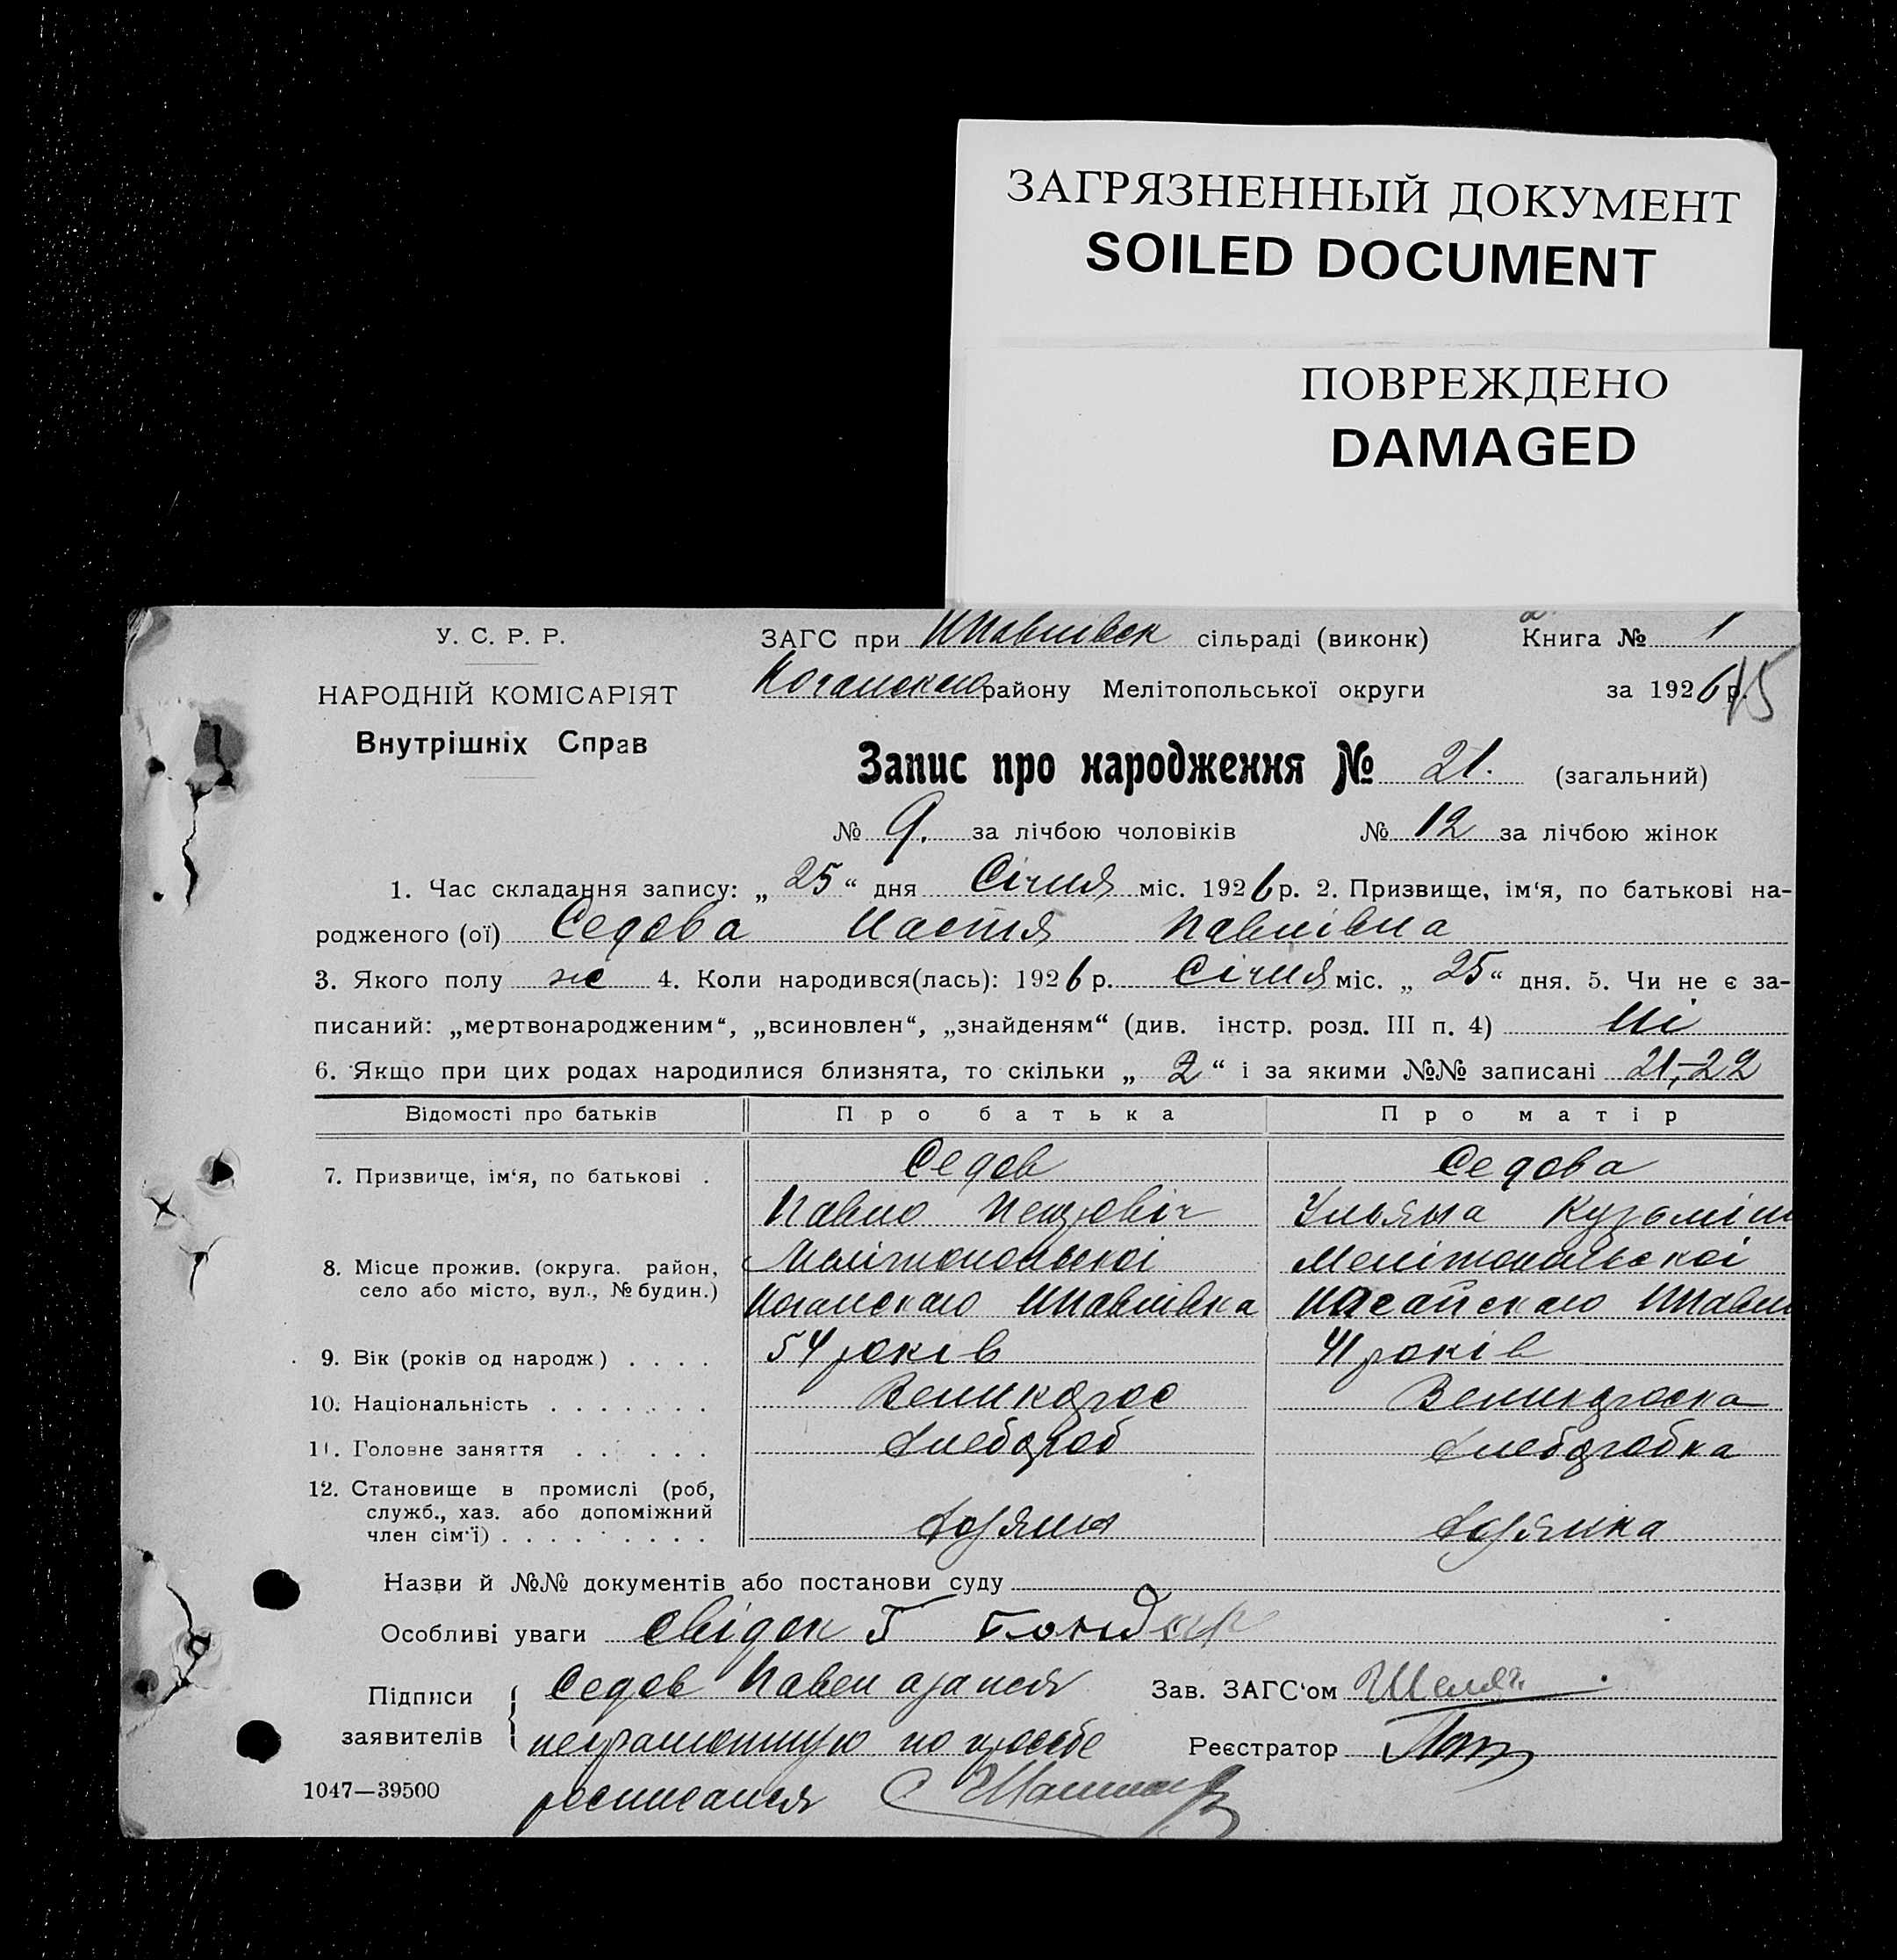 ЗАГРЯЗНЕННЫЙ ДОКУМЕНТ
SOILED DOCUMENT
ПОВРЕЖДЕНО
DAMAGED
У. С. Р. Р.
НАРОДНІЙ КОМІСАРІЯТ
Внутрішніх Справ
ЗАГС при сільраді (виконк) Книга № 1
району Мелітопольської округи за 1926 р.
Запис про народження № 21. (загальний)
№ 9. за лічбою чоловіків № 12 за лічбою жінок
1. Час складання запису: „ 25 “ дня Січня міс. 1926 р. 2. Призвище, ім‘я, по батькові на-
родженого (ої) Седова Настя Павлівна
3. Якого полу же 4. Коли народився(лась): 1926 р. Січня міс. „ 25 “ дня. 5. Чи не є за-
писаний: „мертвонародженим“, „всиновлен“, „знайденям“ (див. інстр. розд. III п. 4) Ні
6. Якщо при цих родах народилися близнята, то скільки „ 2 “ і за якими №№ записані 21,-22
Відомості про батьків Про батька Про матір
7. Призвище, ім‘я, по батькові . Седов Седова
Павло Ульяна Кузьмін
8. Місце прожив. (округа. район, Мелітопольскої Мелітопольскої
село або місто, вул., № будин.)
9. Вік (років од народж) . . . . 54 років 41 років
10. Національність . . . . . . . Великорос Великороска
11. Головне заняття . . . . . . Хлебороб Хлеборобка
12. Становище в промислі (роб,
служб., хаз. або допоміжний
член сім‘ї) . . . . . . . . Хозяин Хозяика
Назви й №№ документів або постанови суду
Особливі уваги свідок Г Бондар
Підписи заявителів Седов Павел Зав. ЗАГС‘ом
по просбе Реєстратор
1047—39500 росписался